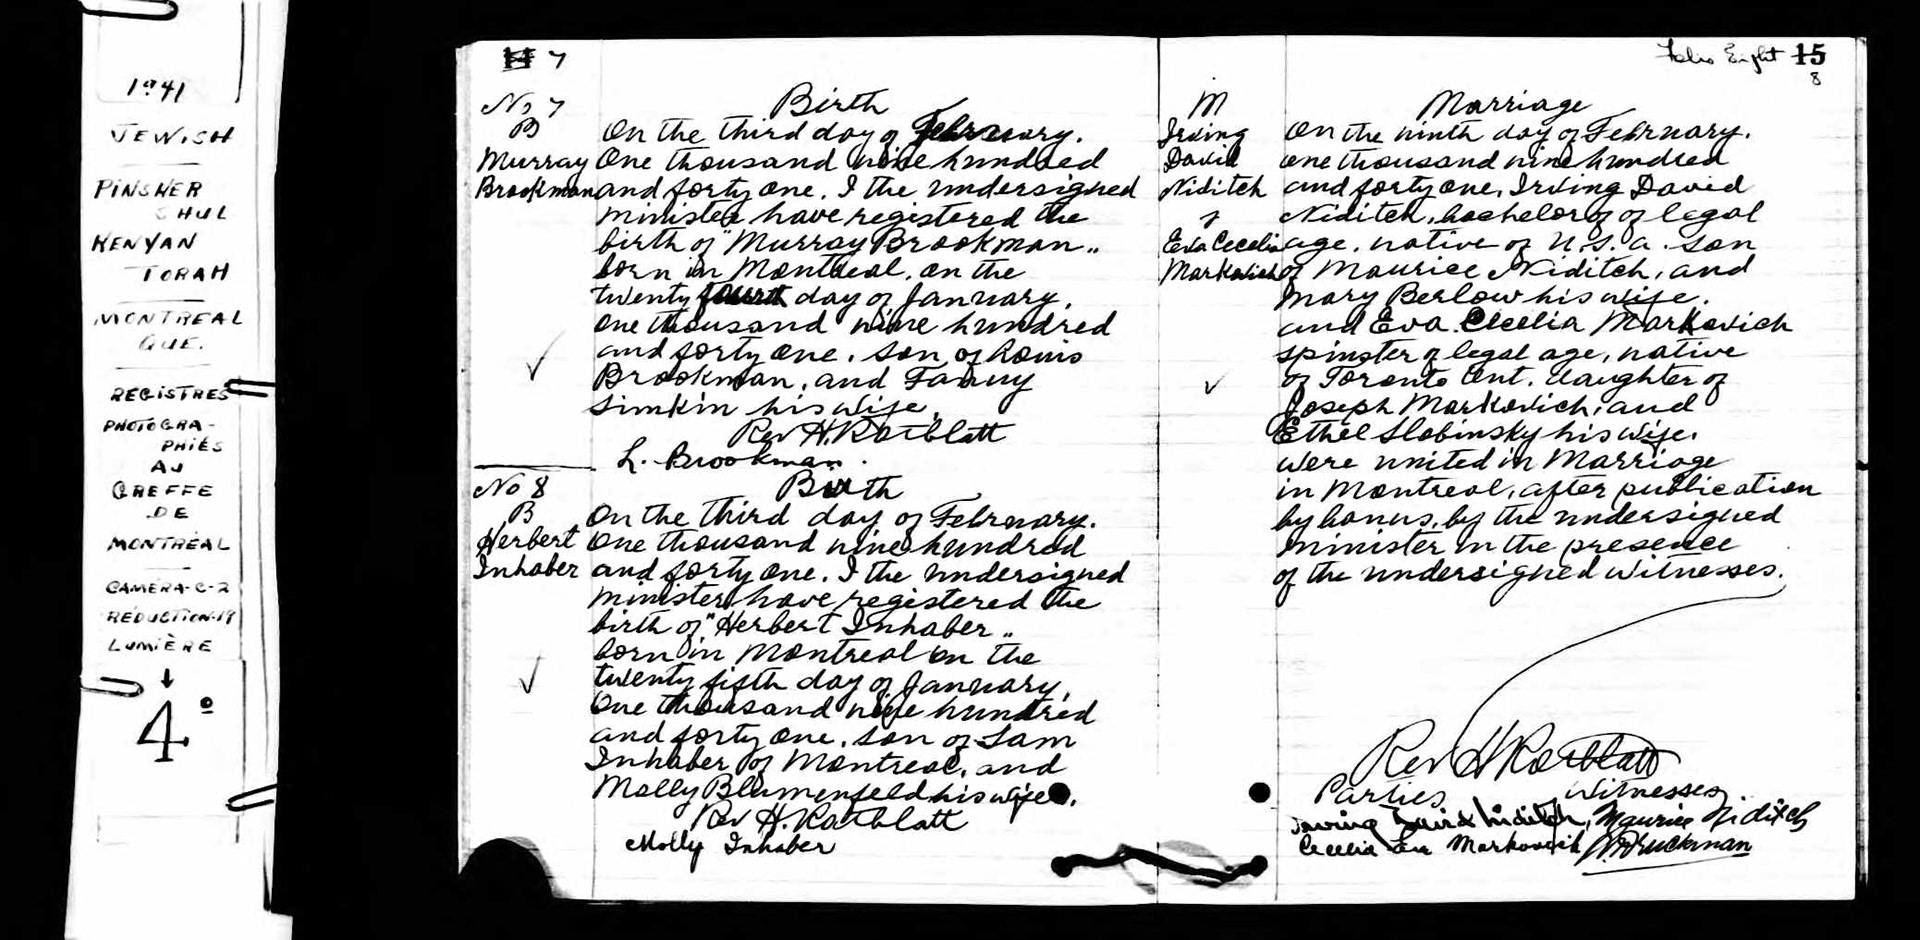 1941
JEWISH
PINSHER
SHUL
KENYAN
TORAH
MONTREAL
QUE.
REGISTRES
PHOTOGRA-
PHIÉS
AU
GREFFE
DE
MONTRÉAL
CAMERA-C-2
RÉDUCTION-19
LUMIÈRE
4º
7
No 7
B
Murray
Brookman
Birth
On the third day of February.
One thousand nine hundred
and forty one. I the undersigned
minister have registered the
birth of "Murray Brookman„
born in Montreal, on the
twenty fourth day of January,
one thousand nine hundred
and forty one. son of Louis
Brookman, and Fanny
Simkin his wife.
Rev H. Rotblatt
L. Brookman.
No 8
B
Herbert
Inhaber
Birth
On the third day of February.
One thousand nine hundred
and forty one. I the undersigned
minister have registered the
birth of "Herbert Inhaber„
born in Montreal on the
twenty fifth day of January,
One thousand nine hundred
and forty one. son of Sam
Inhaber of Montreal, and
Molly Blumenfeld his wife.
Rev H. Rotblatt
Molly Inhaber
Folio Eight 15
8
M
Irving
David
Niditch
&
Eva Cecelia
Markovich
Marriage
On the ninth day of February.
one thousand nine hundred
and forty one, Irving David
Niditch, bachelor of of legal
age, native of U.S.A. son
of Maurice Niditch, and
Mary Berlow his wife.
and Eva Cecelia Markovich
spinster of legal age, native
of Toronto Ont. daughter of
Joseph Markovich, and
Ethel Slobinsky his wife.
were united in Marriage
in Montreal, after publication
by banns, by the undersigned
minister in the presence
of the undersigned witnesses.
Rev H Rotblatt
Parties Witnesses
Irving David Niditch, Maurice Niditch
Cecelia Eva Markovich